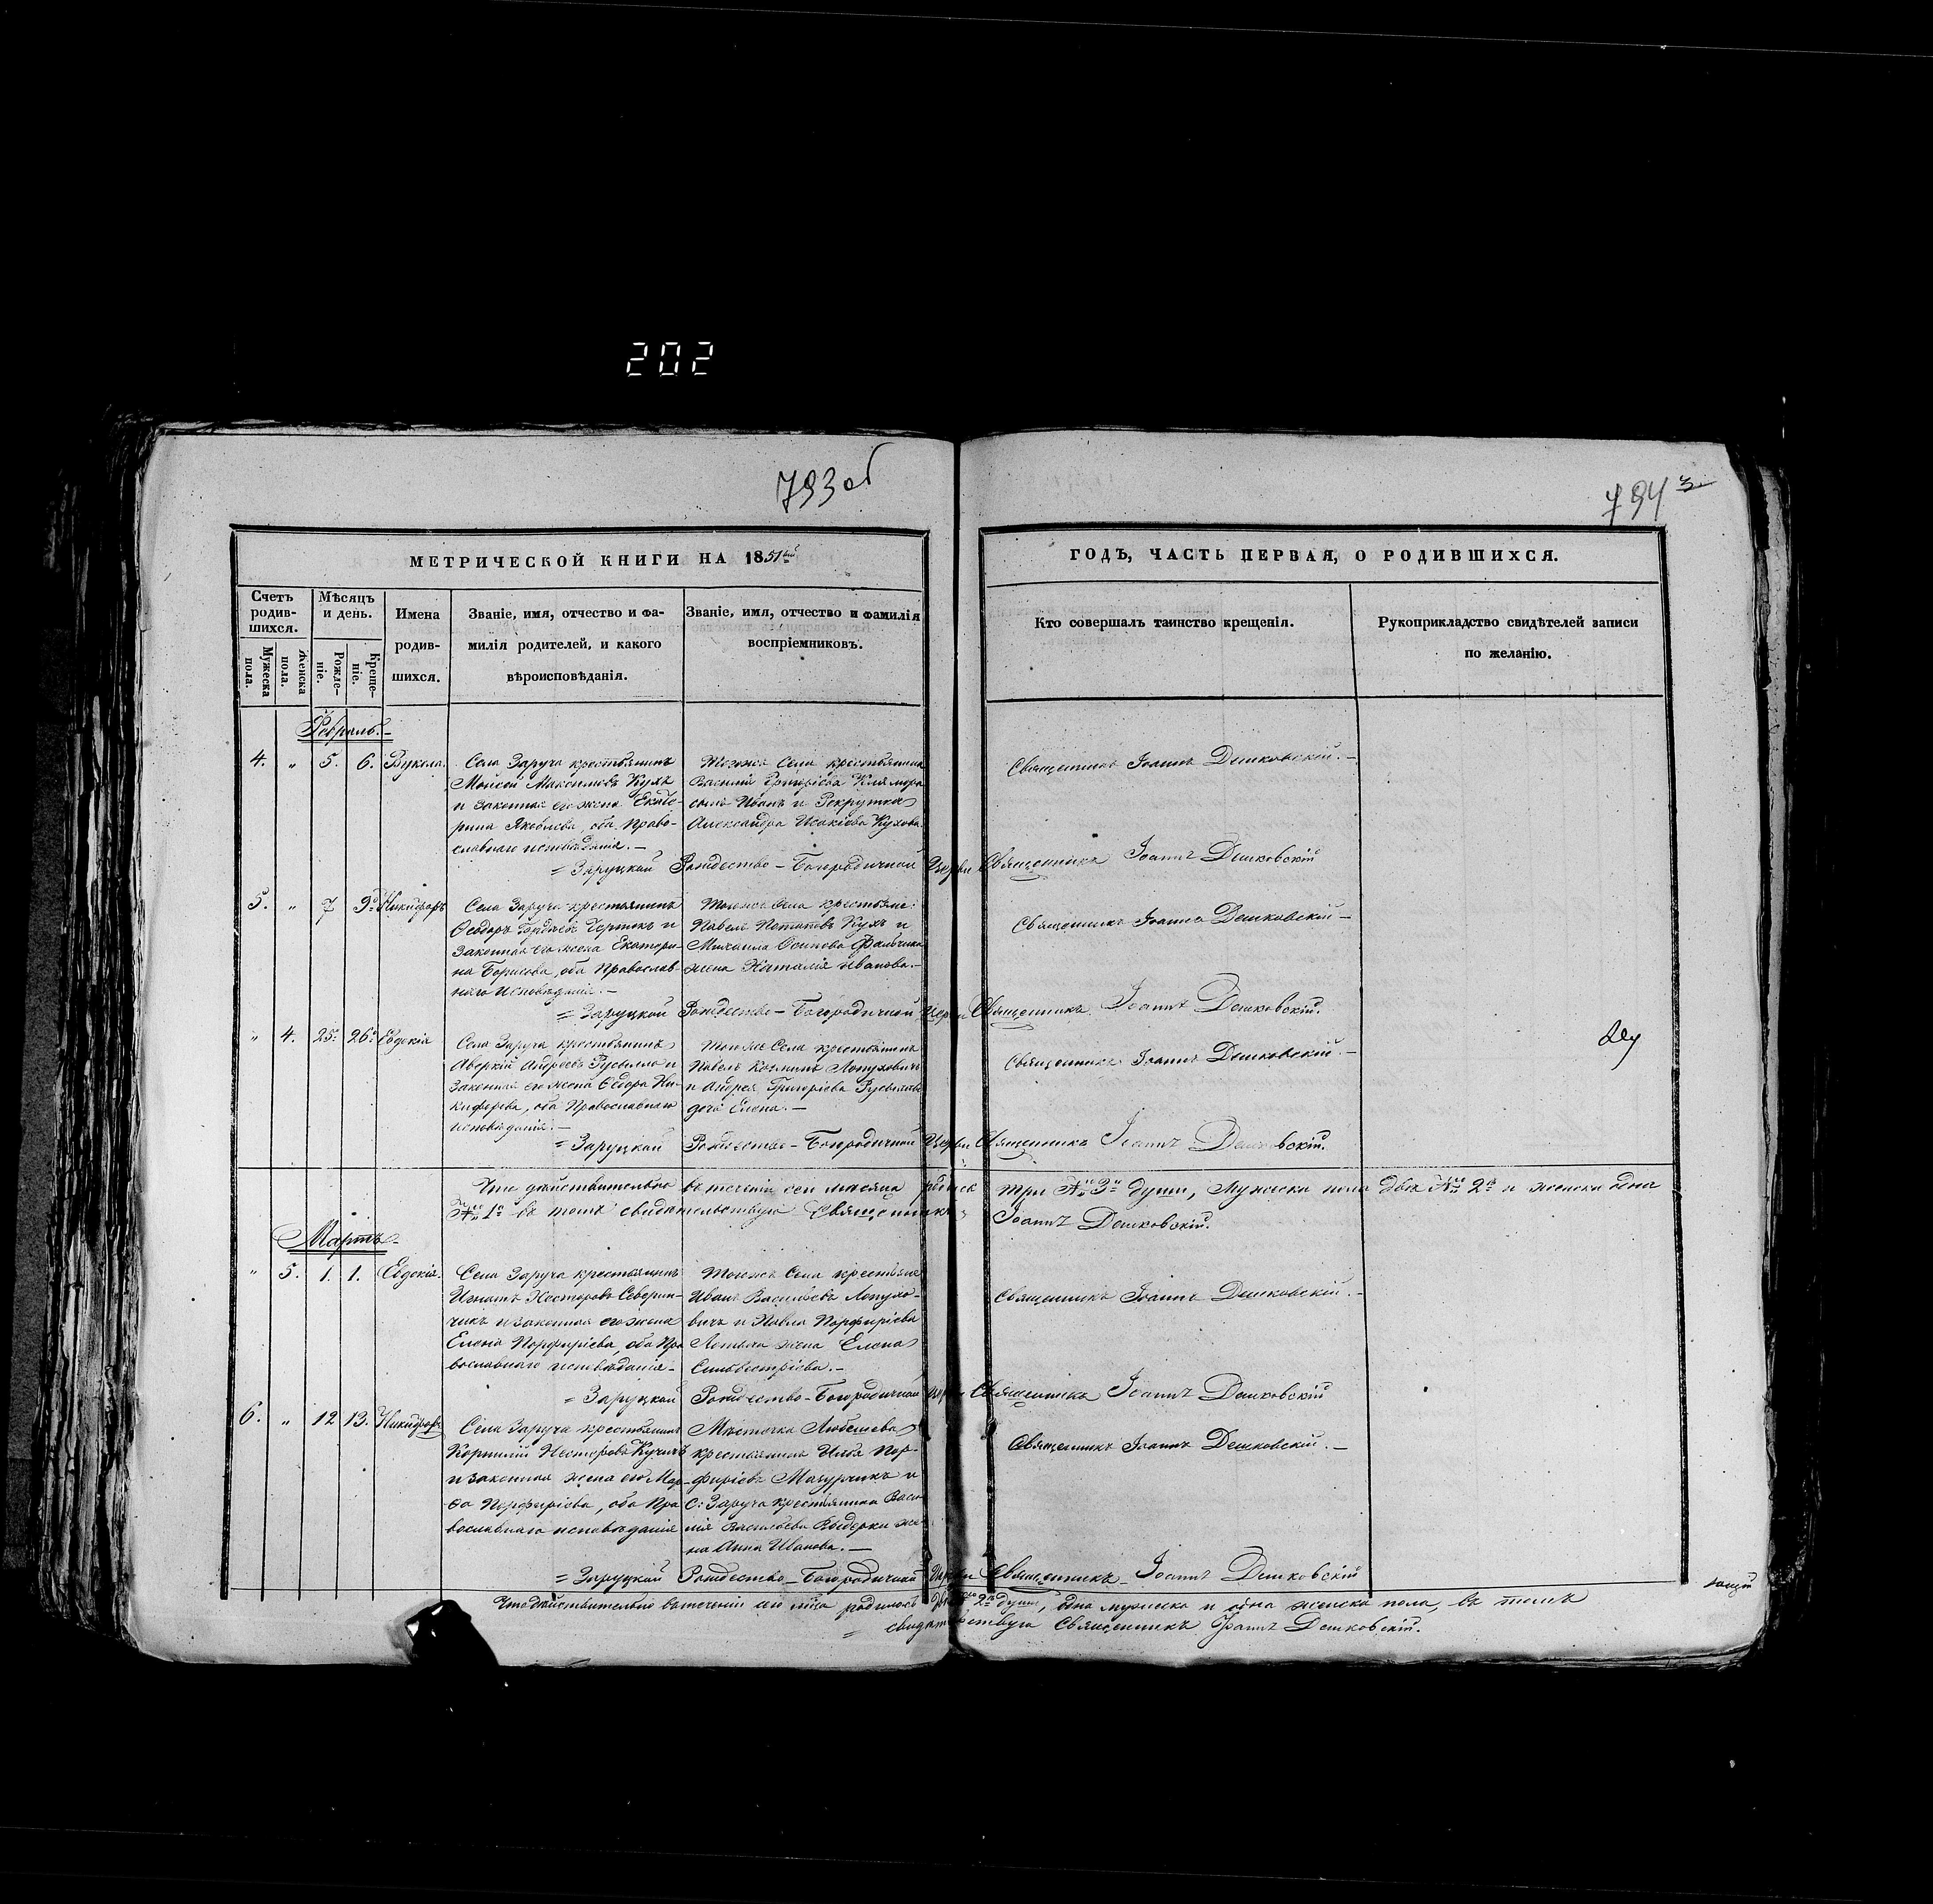 202
793 об
794
3.
МЕТРИЧЕСКОЙ КНИГИ НА 1851
ГОДЪ, ЧАСТЬ ПЕРВАЯ, О РОДИВШИХСЯ.
Счетъ родив-шихся.
Мѣсяцъ и день.
Имена родив-шихся.
Званіе, имя, отчество и фа-
милія родителей, и какого
вѣроисповѣданія.
Званіе, имя, отчество и фамилія
воспріемниковъ.
Кто совершалъ таинство крещенія.
Рукоприкладство свидѣтелей записи
по желанію.
Мужеска пола.
Женска пола.
Рожде-ніе.
Креще-ніе.
Февраль.
4. " 5. 6. Вукола.
Села Заруча крестьянинъ
Моисей Максимовъ Кухъ
и законная его жена Екате-
рина Яковлева, оба Право-
славнаго исповѣданія.
Тогоже Села крестьянина
Василія Григорьева
сынъ Иванъ и Рекрутка
Александра Исакіева Кухова
Священникъ Іоаннъ Дешковскій.
= Заруцкой Рождество-Богородичной Церкви Священникъ Іоаннъ Дешковскій
5. " 7 9. Никифоръ
Села Заруча крестьянинъ
Ѳеодоръ Чертокъ и
законная его жена Екатери-
на Борисова, оба Православ-
наго исповѣданія.
Тогоже Села крестьяне:
Павелъ Кухъ и
Михаила Осипова
жена Наталія Иванова.
Священникъ Іоаннъ Дешковскій
= Заруцкой Рождество-Богородичной Церкви Священникъ Іоаннъ Дешковскій.
" 4. 25. 26. Евдокія
Села Заруча крестьянинъ
Аверкій Андреевъ и
законная его жена Ѳедора Ни-
кифорова, оба Православнаго
исповѣданія.
Тогоже Села крестьянинъ
Павелъ Козминъ Лопуховичъ
и Андрея Григорьева
дочь Елена.
Священникъ Іоаннъ Дешковскій.
= Заруцкой Рождество-Богородичной Церкви Священникъ Іоаннъ Дешковскій.
Что дѣйствительно въ теченіи сего мѣсяца три № 3 души, Мужеска пола двѣ № 2 и женска одна
№ 1 въ томъ свидѣтельствую Священникъ Іоаннъ Дешковскій.
Мартъ
" 5. 1. 1. Евдокія.
Села Заруча крестьянинъ
Игнатъ Несторовъ Северин-
чикъ и законная его жена
Елена Порфиріева, оба Пра-
вославнаго исповѣданія
Тогоже Села крестьяне
Иванъ Васильевъ Лопухо-
вичъ и Павла Порфиріева
жена Елена
Сильвестріева.
Священникъ Іоаннъ Дешковскій.
= Заруцкой Рождество-Богородичной Церкви Священникъ Іоаннъ Дешковскій
6. " 12 13. Никифоръ
Села Заруча крестьянинъ
Корнилій Несторовъ Кучикъ
и законная жена его Мар-
ѳа Порфиріева, оба Пра-
вославнаго исповѣданія
Мѣстечка Любешева
крестьянинъ Илья Пор-
фиріевъ Мазурчикъ и
С: Заруча крестьянина Васи-
лія Васильева Выдерки же-
на Анна Иванова.
Священникъ Іоаннъ Дешковскій.
= Заруцкой Рождество-Богородичной Церкви Священникъ Іоаннъ Дешковскій
Что дѣйствительно въ теченіи сего мѣсяца родилось двѣ 2 души, одна мужеска и одна женска пола, въ томъ
= свидѣтельствую Священникъ Іоаннъ Дешковскій.